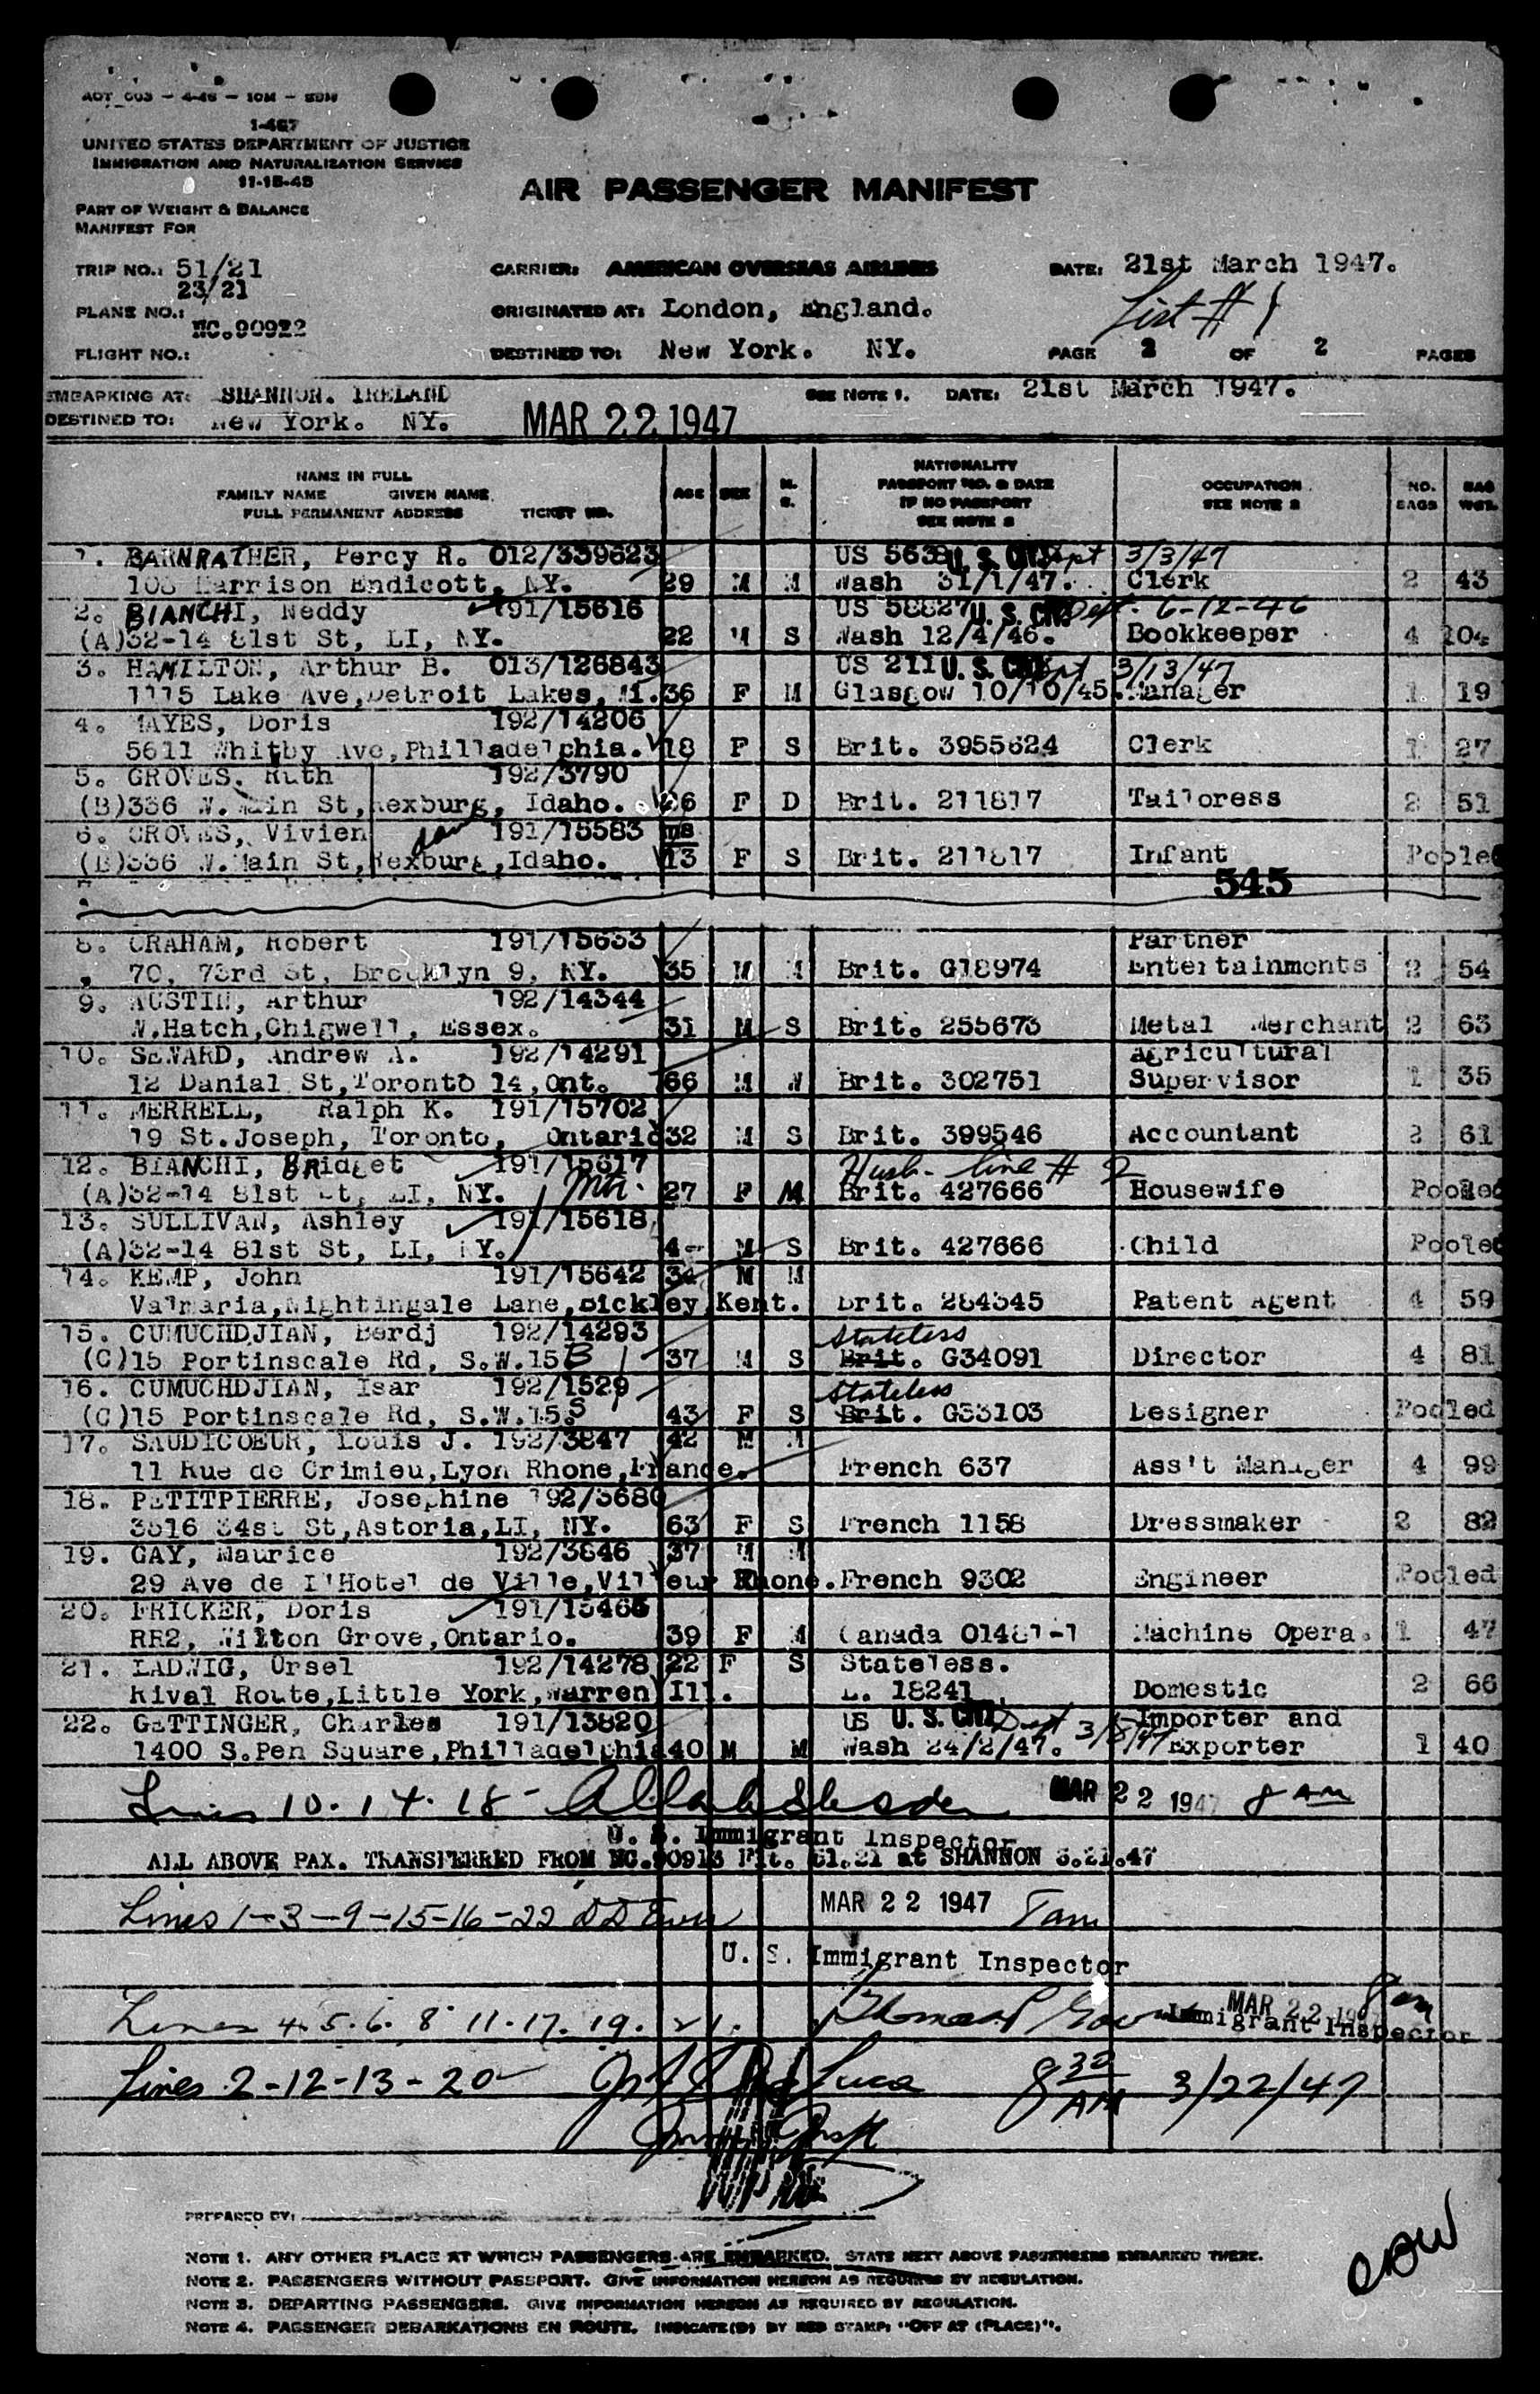 1-467
UNITED STATES DEPARTMENT OF JUSTICE
IMMIGRATION AND NATURALIZATION SERVICE
11-15-45
AIR PASSENGER MANIFEST
PART OF WEIGHT & BALANCE
MANIFEST FOR
TRIP NO.: 51/21 CARRIER: AMERICAN OVERSEAS AIRLINES DATE: 21st March 1947.
23/21
PLANE NO.: NC.90922 ORIGINATED AT: London, England. List # 1
FLIGHT NO.: DESTINED TO: New York. NY. PAGE 2 OF 2 PAGES
EMBARKING AT: SHANNON. IRELAND SEE NOTE 1. DATE: 21st March 1947.
DESTINED TO: New York. NY. MAR 22 1947
NAME IN FULL
FAMILY NAME GIVEN NAME
FULL PERMANENT ADDRESS TICKET NO.
AGE SEX M. S.
NATIONALITY
PASSPORT NO. & DATE
IF NO PASSPORT
SEE NOTE 2
OCCUPATION
SEE NOTE 2
NO. BAGS
BAG WGT.
1. BARNRATHER, Percy R. 012/339623 US U. S. CIT. Dept 3/3/47
Harrison Endicott, NY. 29 M M Wash 31/1/47. Clerk 2 43
2. BIANCHI, Neddy 191/15616 US 58827 U. S. CIT. Dept. 6-12-46
(A)32-14 81st St, LI, NY. 22 M S Wash 12/4/46. Bookkeeper 4 104
3. HAMILTON, Arthur B. 013/126843 US 211 U. S. CIT. Dept 3/13/47
1115 Lake Ave,Detroit Lakes, 36 F M Glasgow 10/10/45. Manager 1 19
4. HAYES, Doris 192/14206
5611 Whitby Ave,Philladelphia. 18 F S Brit. 3955624 Clerk 1 27
5. GROVES. Ruth 192/3790
(B)336 W. Main St, Rexburg, Idaho. 26 F D Brit. 211817 Tailoress 2 51
6. GROVES, Vivien dau 191/15583 ms
(B)336 W.Main St,Rexburg,Idaho. 13 F S Brit. 211817 Infant Pooled
545
8. GRAHAM, Robert 191/15633 Partner
70, 73rd St, Brooklyn 9, NY. 35 M M Brit. G18974 Entertainments 2 54
9. AUSTIN, Arthur 192/14344
W.Hatch,Chigwell, Essex. 31 M S Brit. 255673 Metal Merchant 2 63
10. SEWARD, Andrew A. 192/14291 Agricultural
12 Danial St,Toronto 14,Ont. 66 M W Brit. 302751 Supervisor 1 35
11. MERRELL, Ralph K. 191/15702
19 St.Joseph, Toronto, Ontario 32 M S Brit. 399546 Accountant 2 61
12. BIANCHI, BRidget 191/15617 Husb- line # 2
(A)32-14 81st St, LI, NY. Mtr. 27 F M Brit. 427666 Housewife Pooled
13. SULLIVAN, Ashley 191/15618
(A)32-14 81st St, LI, NY. 4 M S Brit. 427666 Child Pooled
14. KEMP, John 191/15642 34 M M
Valmaria,Nightingale Lane,Bickley,Kent. Brit. 284345 Patent Agent 4 59
15. CUMUCHDJIAN, Berdj 192/14293 Stateless
(C)15 Portinscale Rd, S.W.15 B 37 M S Brit. G34091 Director 4 81
16. CUMUCHDJIAN, Isar 192/1529 Stateless
(C)15 Portinscale Rd, S.W.15. S 43 F S Brit. G33103 Designer Pooled
17. SAUDICOEUR, Louis J. 192/3847 42 M M
11 Rue de Crimieu,Lyon Rhone,France. French 637 Ass't Manager 4 99
18. PETITPIERRE, Josephine 192/3680
3516 34st St,Astoria,LI, NY. 63 F S French 1158 Dressmaker 2 82
19. GAY, Maurice 192/3846 37 M M
29 Ave de I'Hotel de Ville,Villeur Rhone. French 9302 Engineer Pooled
20. FRICKER, Doris 191/15465
RR2, Wilton Grove,Ontario. 39 F M Canada 01481-1 Machine Opera. 1 47
21. LADWIG, Ursel 192/14278 22 F S Stateless.
Rival Route,Little York,Warren Ill. 18241 Domestic 2 66
22. GETTINGER, Charles 191/13820 US U. S. CIT. Dept 3/8/47 Importer and
1400 S.Pen Square,Philladelphia 40 M M Wash 24/2/47. Exporter 1 40
Lines 10.14.18- MAR 22 1947 8 AM
U. S. Immigrant Inspector
ALL ABOVE PAX. TRANSFERRED FROM NC.90913 Flt. 51.21 at SHANNON 3.21.47
Lines 1-3-9-15-16-22 MAR 22 1947 7am
U. S. Immigrant Inspector
Lines 4.5.6.8 11.17.19.21. MAR 22 1947 8am
Immigrant Inspector
Lines 2-12-13-20 8 30 AM 3/22/47
PREPARED BY:
NOTE 1. ANY OTHER PLACE AT WHICH PASSENGERS ARE EMBARKED. STATE NEXT ABOVE PASSENGERS EMBARKED THERE.
NOTE 2. PASSENGERS WITHOUT PASSPORT. GIVE INFORMATION HEREON AS REQUIRED BY REGULATION.
NOTE 3. DEPARTING PASSENGERS. GIVE INFORMATION HEREON AS REQUIRED BY REGULATION.
NOTE 4. PASSENGER DEBARKATIONS EN ROUTE. INDICATE(D) BY RED STAMP: "OFF AT (PLACE)".